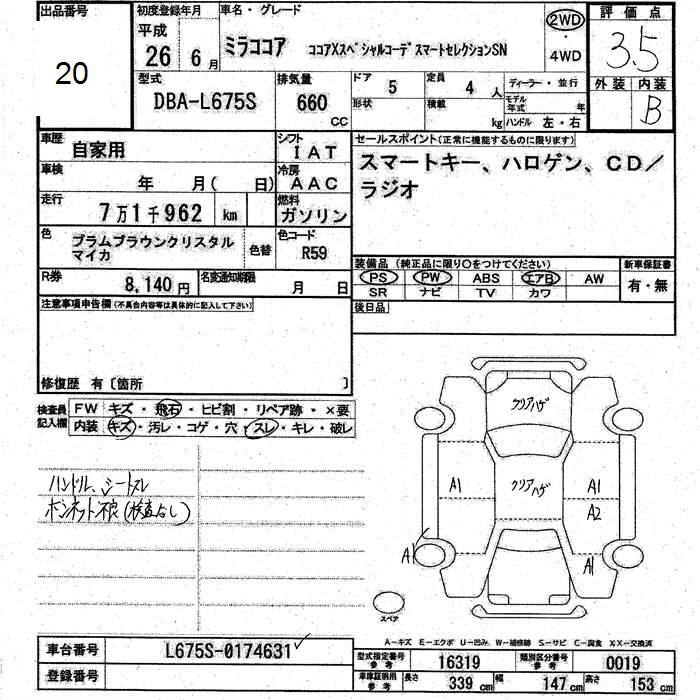 出品番号
20
初度登録年月
平成
26 6月
車名・グレード
ミラココア ココアXスペシャルコーデスマートセレクションSN
2WD
・
4WD
評価点
3.5
型式
DBA-L675S
排気量
660
CC
ドア
5
定員
4 人
ディーラー・並行
形状
積載
kg
モデル年式 年
ハンドル 左・右
外装 内装
B
車歴
自家用
シフト
IAT
車検
年 月( 日)
冷房
AAC
走行
7万1千962 km
燃料
ガソリン
色
プラムブラウンクリスタル
マイカ
色替
色コード
R59
R券
8,140 円
名変通知期限
月 日
セールスポイント(正常に機能するものに限ります)
スマートキー、ハロゲン、CD/
ラジオ
装備品(純正品に限り○をつけてください)
PS PW ABS エアB AW
SR ナビ TV カワ
新車保証書
有・無
後日品
注意事項申告欄(不具合内容等は具体的に記入して下さい)
修復歴 有〔箇所 〕
検査員
記入欄
FW キズ・飛石・ヒビ割・リペア跡・×要
内装 キズ・汚レ・コゲ・穴・スレ・キレ・破レ
ハンドル、シートスレ
ボンネット不良(検査なし)
クリアハゲ
A1 クリアハゲ A1
A2
A1 A1
スペア
A-キズ E-エクボ U-凹み W-補修跡 S-サビ C-腐食 XX-交換済
車台番号
L675S-0174631
登録番号
型式指定番号
参考
16319
類別区分番号
参考
0019
車庫証明用
参考
長さ
339 cm
幅
147 cm
高さ
153 cm